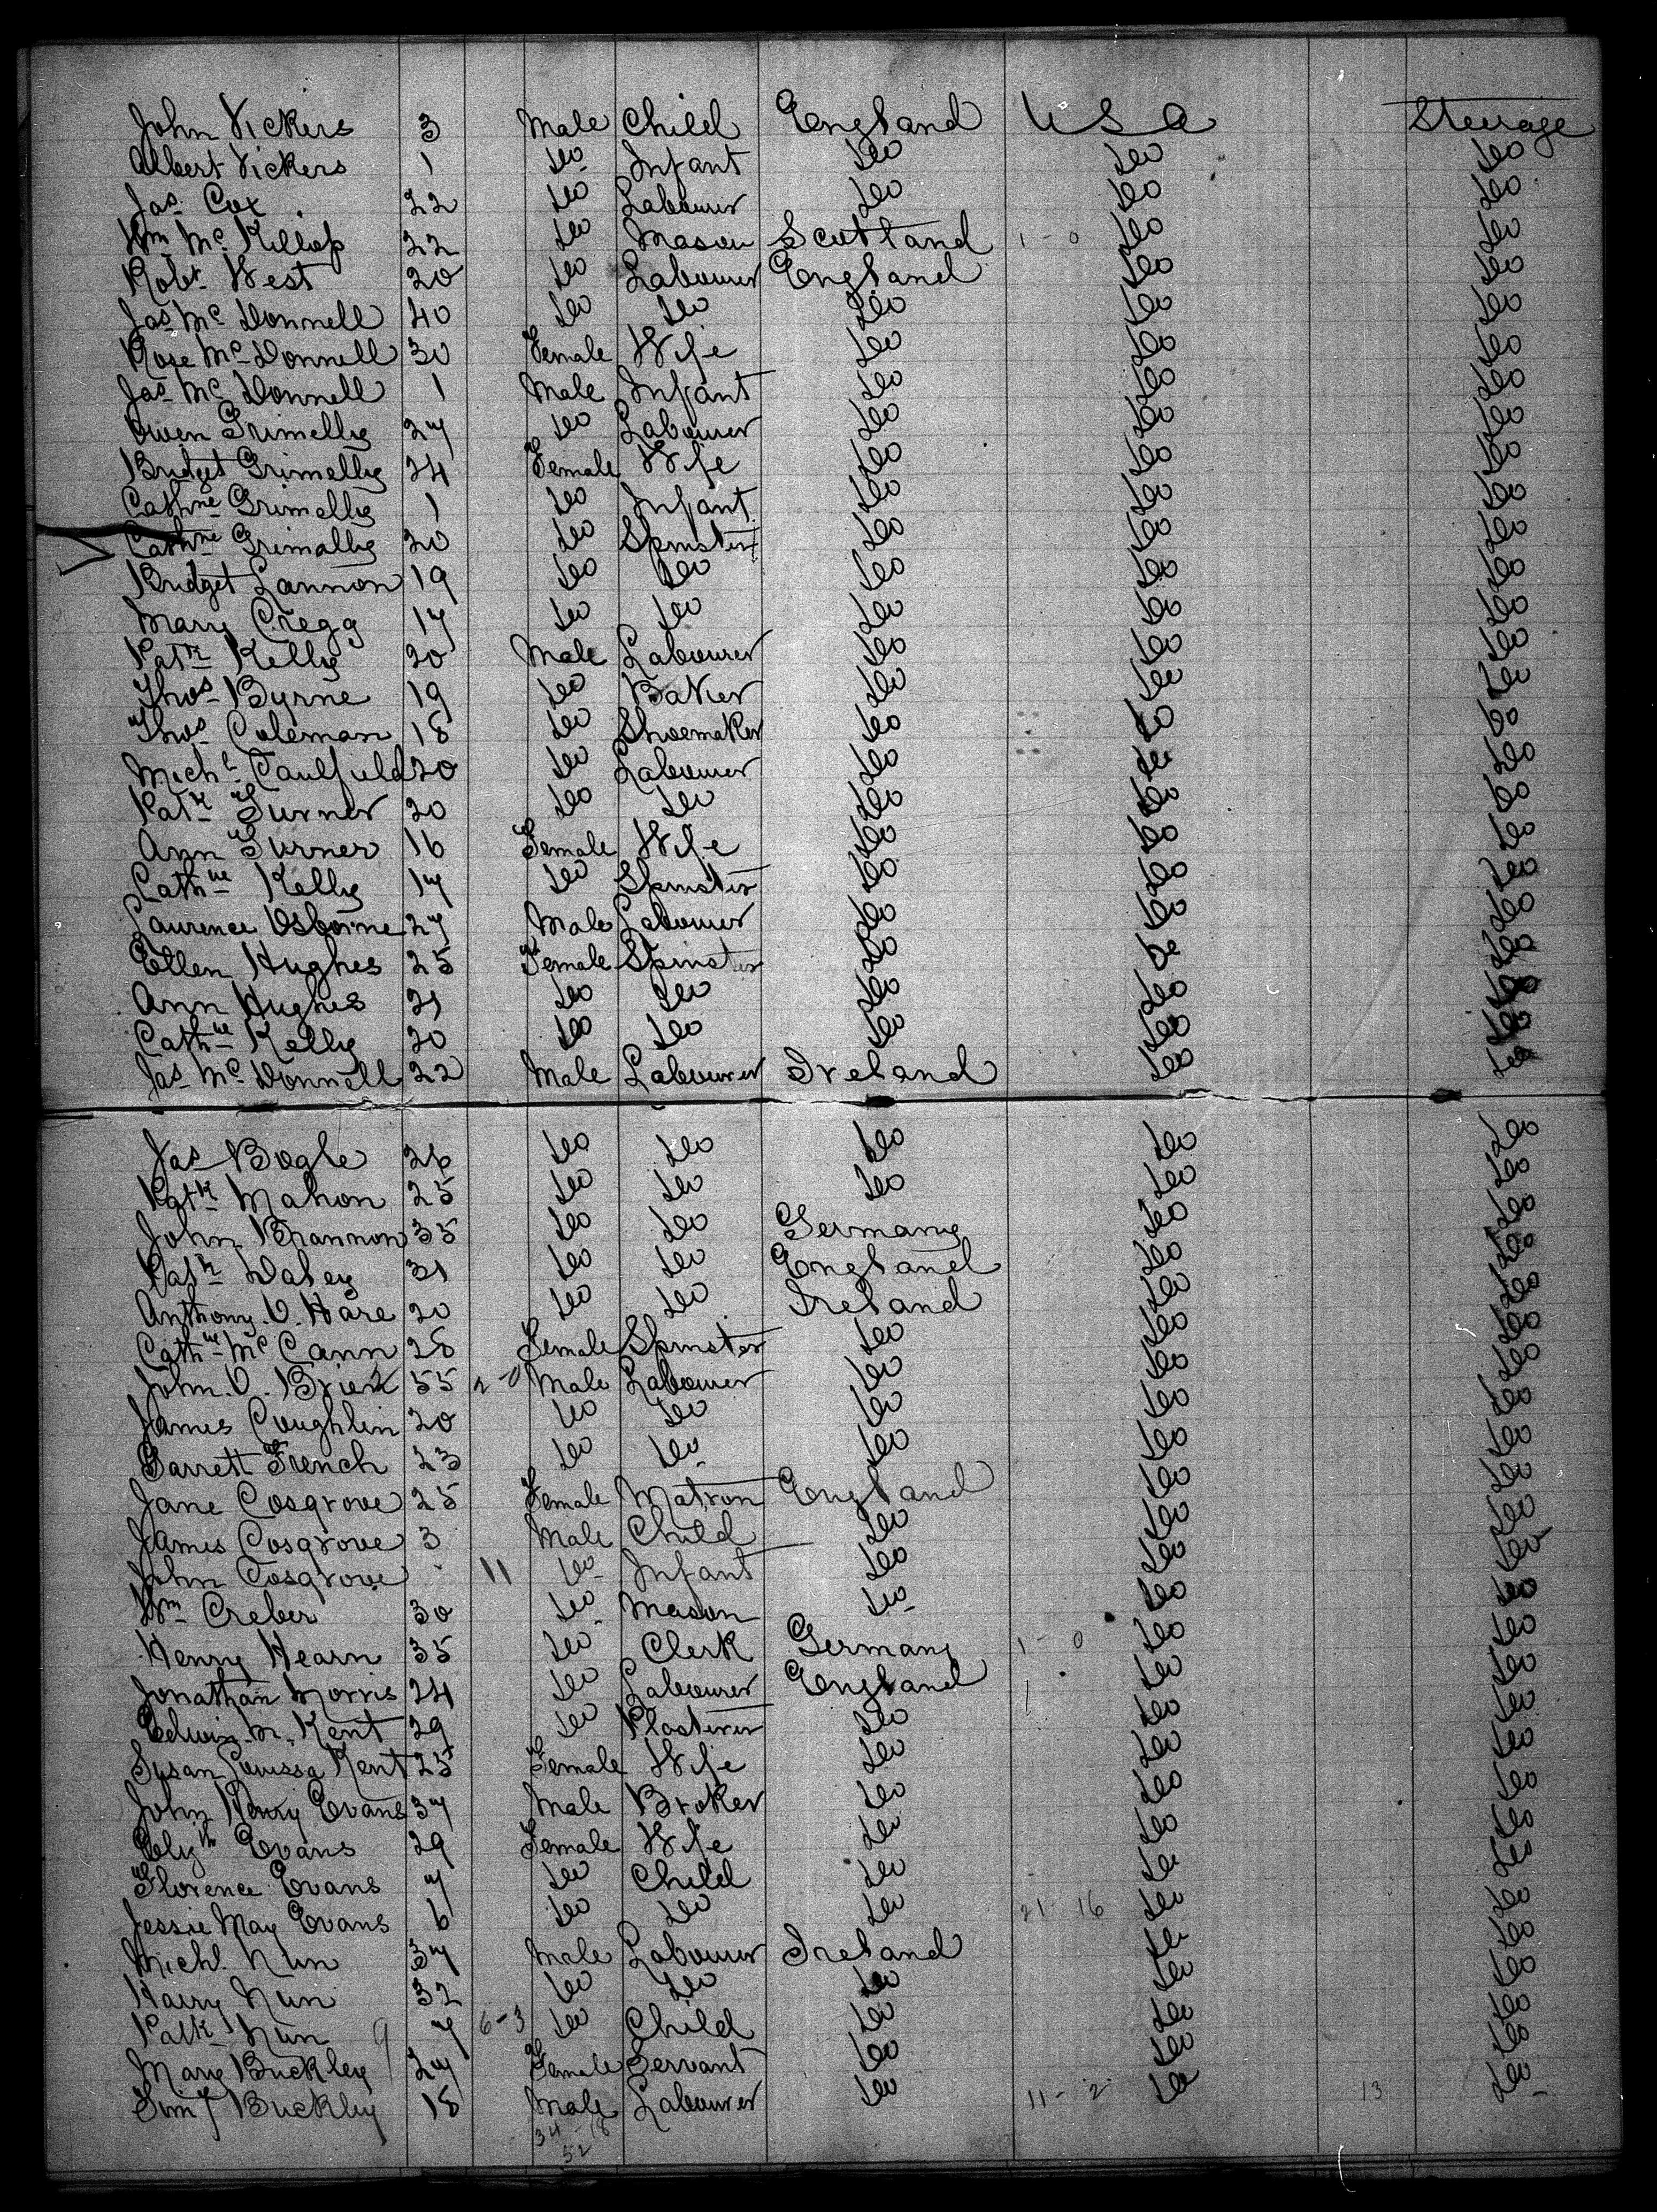 John Vickers 3 Male Child England U S A Steerage
Albert Vickers 1 do Infant do do do
Jas Cox 22 do Labourer do do do
Wm Mc Killop 22 do Mason Scotland 1 - 0 do do
Robt West 20 do Labourer England do do
Jas Mc Donnell 40 do do do do do
Rose Mc Donnell 30 Female Wife do do do
Jas Mc Donnell 1 Male Infant do do do
Owen Grimelly 27 do Labourer do do do
Bridget Grimelly 24 Female Wife do do do
Cathne Grimelly 1 do Infant do do do
Cathne Grimally 20 do Spinster do do do
Bridget Lannon 19 do do do do do
Mary Cregg 17 do do do do do
Patk Kelly 20 Male Labourer do do do
Thos Byrne 19 do Baker do do do
Thos Coleman 18 do Shoemaker do do do
Michl Caulfield 20 do Labourer do do do
Patk Turner 20 do do do do do
Ann Turner 16 Female Wife do do do
Cathne Kelly 17 do Spinster do do do
Laurence Osborne 27 Male Labourer do do do
Ellen Hughes 25 Female Spinster do do do
Ann Hughes 21 do do do do do
Cathne Kelly 20 do do do do do
Jas Mc Donnell 22 Male Labourer Ireland do do
Jas Bogle 26 do do do do do
Patk Mahon 25 do do do do do
John Brannon 35 do do Germany do do
Patk Daley 31 do do England do do
Anthony O. Hare 20 do do Ireland do do
Cathne Mc Cann 28 Female Spinster do do do
John. O. Brien 55 2 - 0 Male Labourer do do do
James Coughlin 20 do do do do do
Garrett French 23 do do do do do
Jane Cosgrove 25 Female Matron England do do
James Cosgrove 3 Male Child do do do
John Cosgrove 11 do Infant do do do
Wm Creber 30 do Mason do do do
Henry Hearn 35 do Clerk Germany 1 - 0 do do
Jonathan Morris 24 do Labourer England do do
Edwin. M. Kent 29 do Plasterer do do do
Susan Louissa Kent 25 Female Wife do do do
John Henry Evans 37 Male Broker do do do
Elizth Evans 29 Female Wife do do do
Florence Evans 7 do Child do do do
Jessie May Evans 6 do do do 21 - 16 do do
Michl. Nun 37 Male Labourer Ireland do do
Harry Nun 32 do do do do do
Patk Nun 9 7 6 - 3 do Child do do do
Mary Buckley 27 Female Servant do do do
Timy Buckley 18 Male Labourer do 11 - 2 do 13 do
34 - 18
52